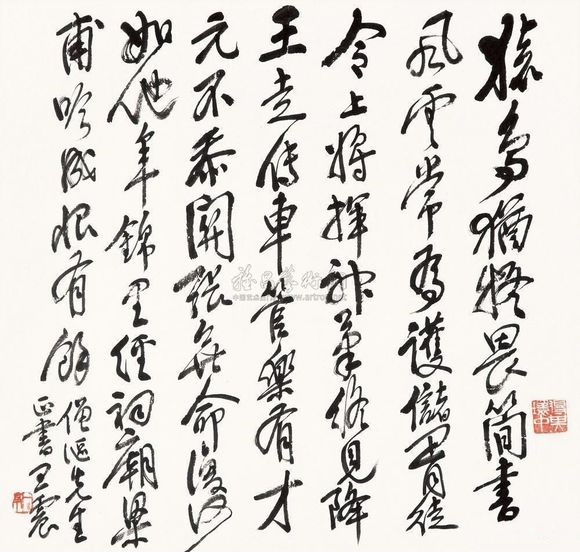 猿鳥猶疑畏簡書
風雲常為護儲胥徒
令上將揮神筆終見降
王走傳車管樂有才
元不忝關張無命復何
如他年錦里經祠廟梁
甫吟成恨有餘 僧先生
正書王震
雅昌藝術网